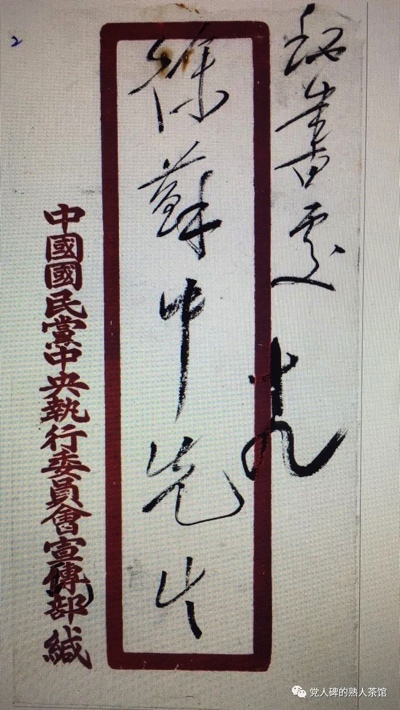 秘書處
徐蘇中先生
中國國民黨中央執行委員會宣傳部緘
2
党人碑的熟人茶馆